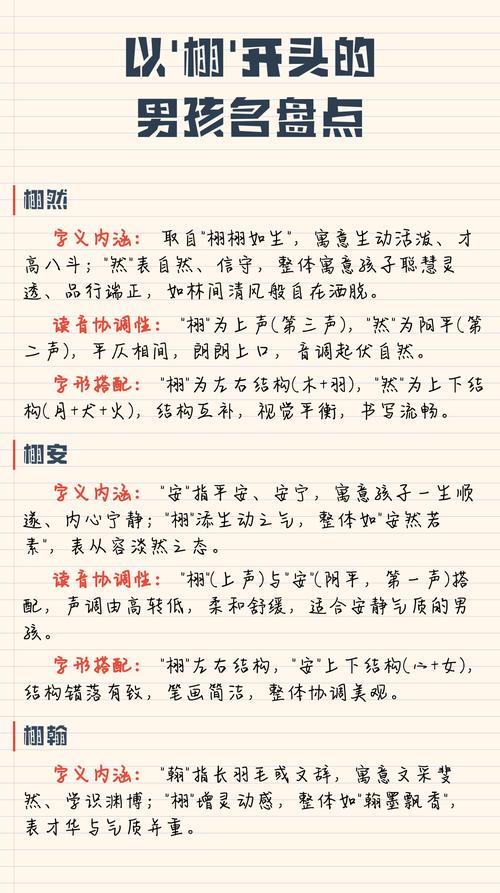 以'栩'开头的
男孩名盘点
栩然
字义内涵： 取自"栩栩如生"，寓意生动活泼、才
高八斗；"然"表自然、信守，整体寓意孩子聪慧灵
透、品行端正，如林间清风般自在洒脱。
读音协调性： "栩"为上声(第三声)，"然"为阳平(第
二声)，平仄相间，朗朗上口，音调起伏自然。
字形搭配： "栩"为左右结构(木+羽)，"然"为上下结
构(月+犬+火)，结构互补，视觉平衡，书写流畅。
栩安
字义内涵： "安"指平安、安宁，寓意孩子一生顺
遂、内心宁静；"栩"添生动之气，整体如"安然若
素"，表从容淡然之态。
读音协调性： "栩"(上声)与"安"(阴平，第一声)搭
配，声调由高转低，柔和舒缓，适合安静气质的男
孩。
字形搭配： "栩"左右结构，"安"上下结构(宀+女)，
结构错落有致，笔画简洁，整体协调美观。
栩翰
字义内涵： "翰"指长羽毛或文辞，寓意文采斐
然、学识渊博；"栩"增灵动感，整体如"翰墨飘香"，
表才华与气质并重。